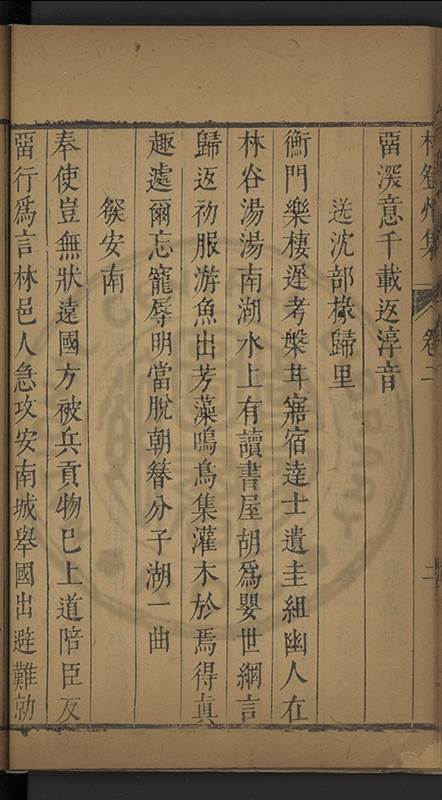 林登州集 卷二 二
畱深意千載返淳音
送沈部掾歸里
衡門樂棲遲考槃茸寤宿達士遺圭組幽人在
林谷湯湯南湖水上有讀書屋胡爲嬰世網言
歸返初服游魚出芳藻鳴鳥集灌木於焉得眞
趣處爾忘寵辱明當脫朝簪分子湖一曲
發安南
奉使豈無狀遠國方被兵貢物巳上道陪臣反
畱行爲言林邑人急攻安南城舉國出避難勍